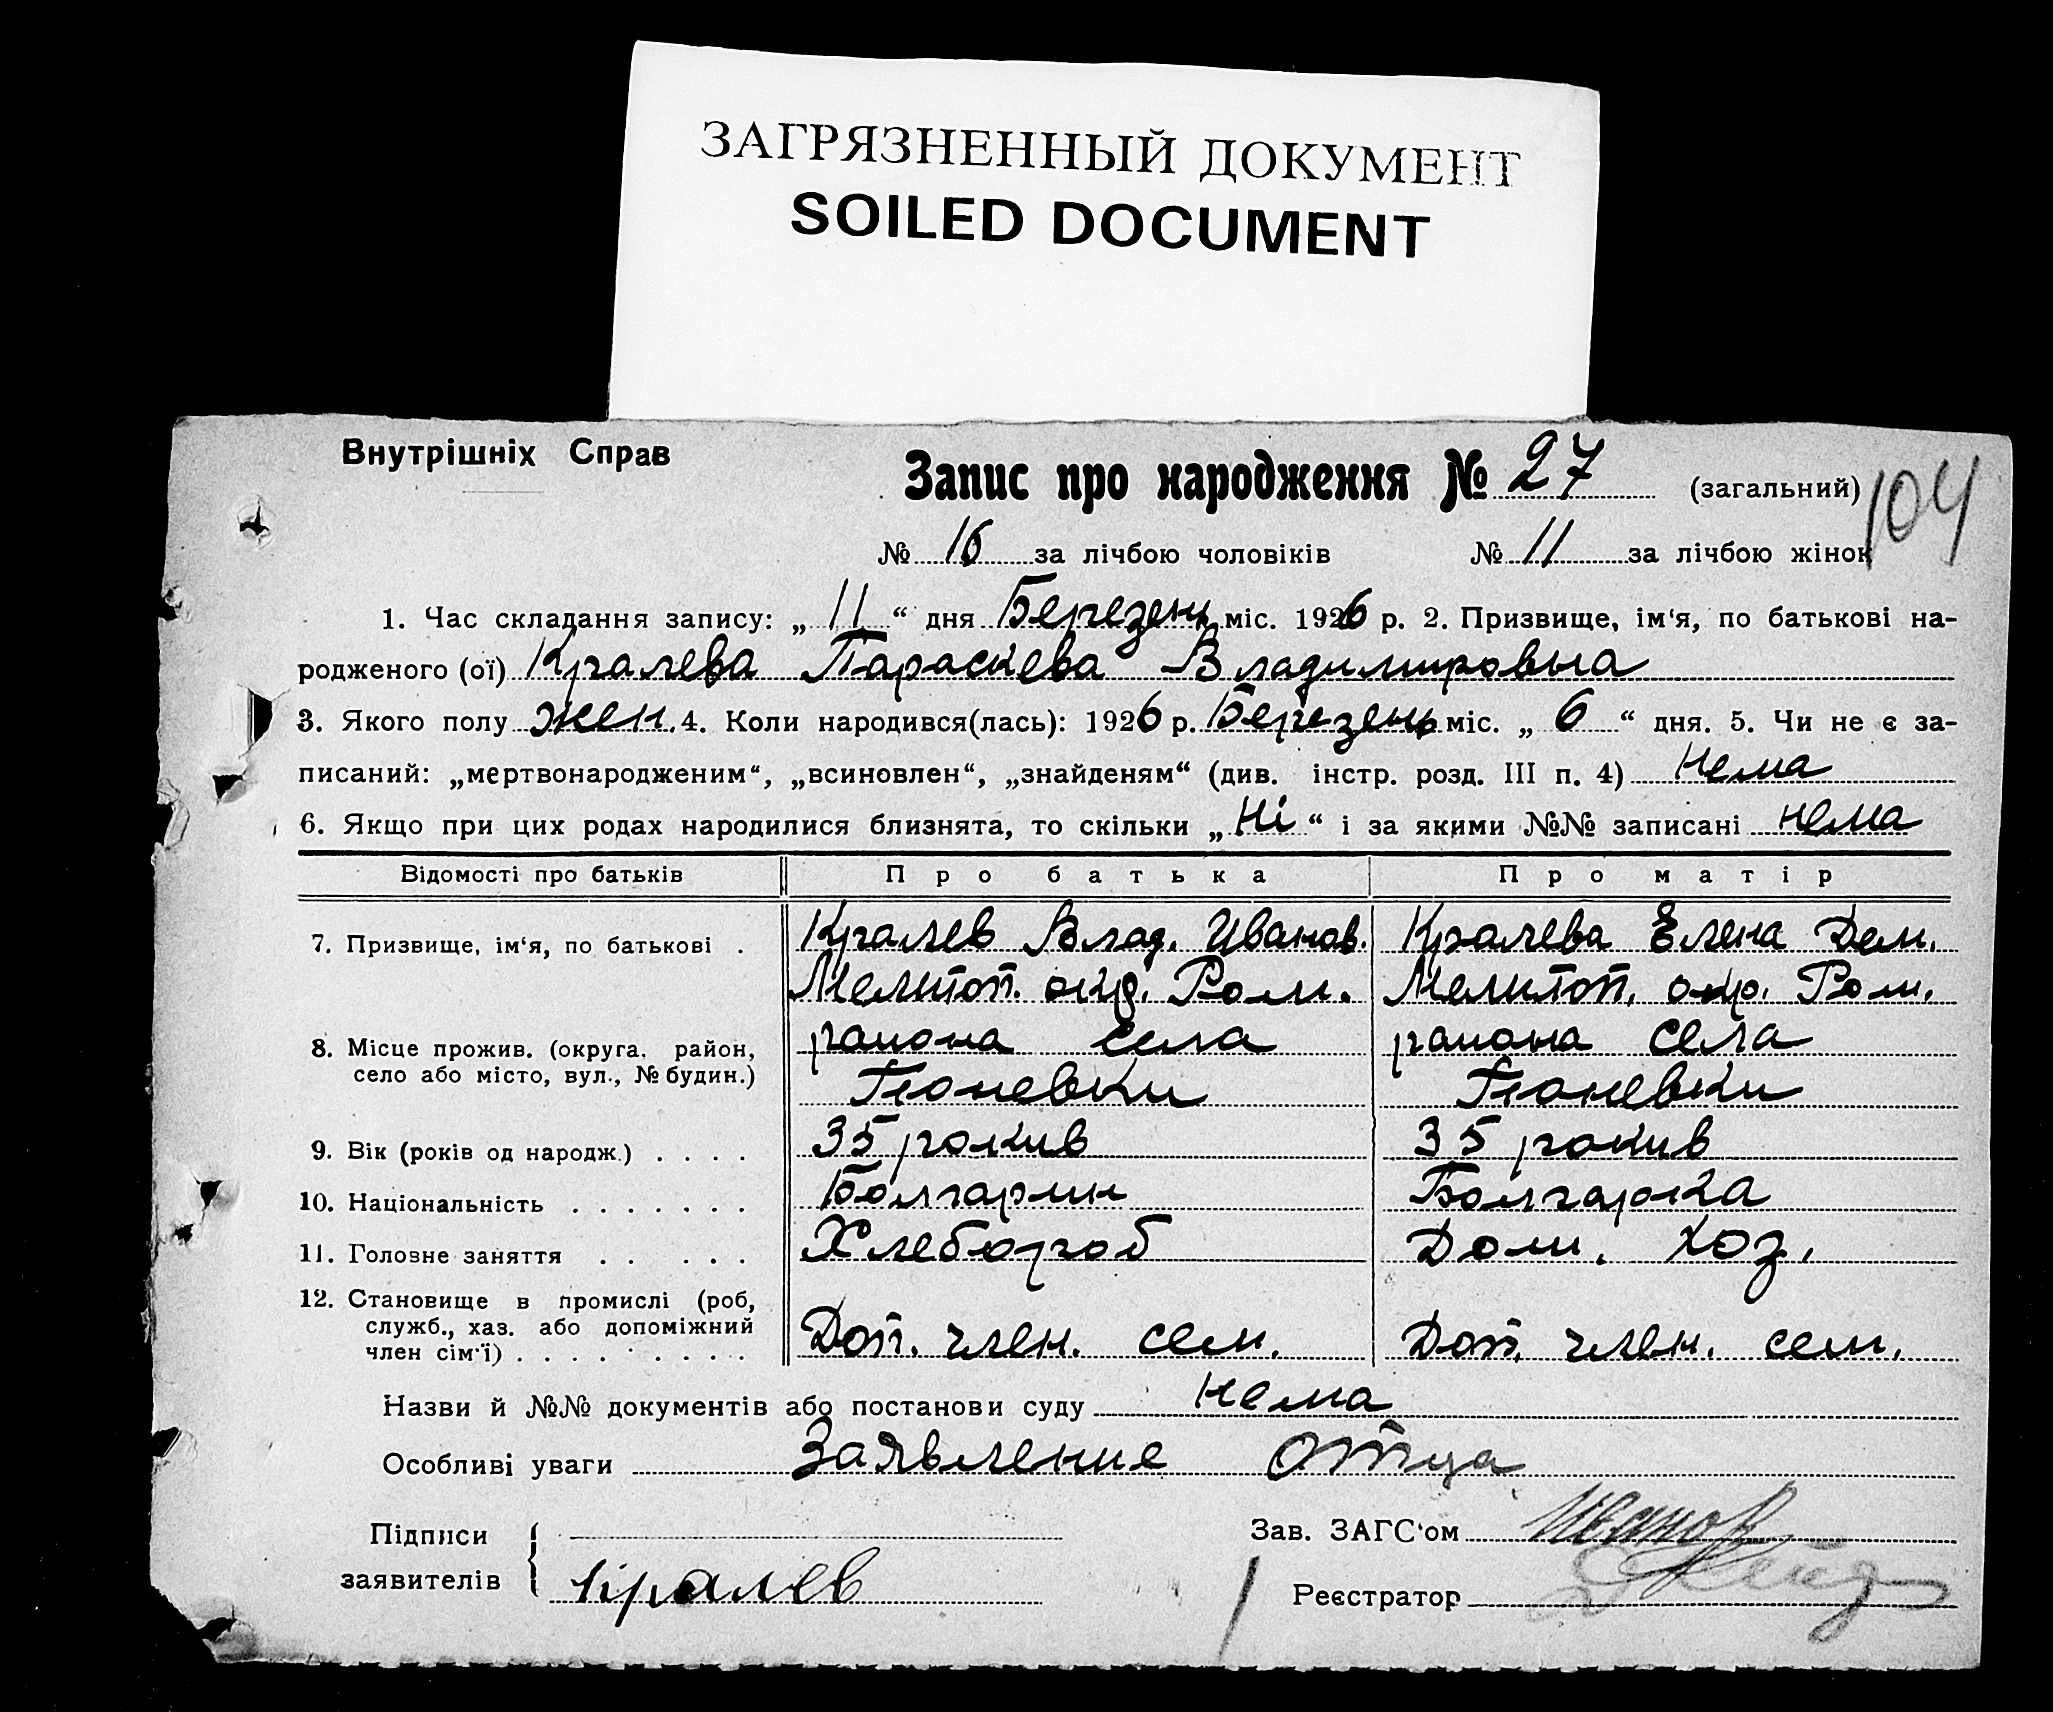 ЗАГРЯЗНЕННЫЙ ДОКУМЕНТ
SOILED DOCUMENT
Внутрішніх Справ
Запис про народження № 27 (загальний)
104
№ 16 за лічбою чоловіків № 11 за лічбою жінок
1. Час складання запису: „ 11 “ дня Березень міс. 1926 р. 2. Призвище, ім‘я, по батькові на-
родженого (ої) Кралева Параскева Владимировна
3. Якого полу жен. 4. Коли народився(лась): 1926 р. Березень міс. „ 6 “ дня. 5. Чи не є за-
писаний: „мертвонародженим“, „всиновлен“, „знайденям“ (див. інстр. розд. III п. 4) нема
6. Якщо при цих родах народилися близнята, то скільки „ Ні “ і за якими №№ записані нема
Відомості про батьків Про батька Про матір
7. Призвище, ім‘я, по батькові . Кралев Влад. Иванов. Кралева Елена Дем.
Мелитоп. окр. Ром. Мелитоп. окр. Ром.
8. Місце прожив. (округа, район, района села района села
село або місто, вул., № будин.) Гюневки Гюневки
9. Вік (років од народж.) . . . . 35 рокив 35 рокив
10. Національність . . . . . . . Болгарин Болгарка
11. Головне заняття . . . . . Хлебороб Дом. хоз.
12. Становище в промислі (роб,
служб., хаз. або допоміжний
член сім‘ї) . . . . . . . . . Доп. член. сем. Доп. член. сем.
Назви й №№ документів або постанови суду нема
Особливі уваги Заявление отца
Підписи
заявителів Кралев
Зав. ЗАГС‘ом Иванов
Реєстратор